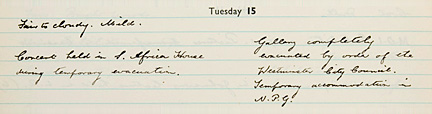 Tuesday 15
Fair to cloudy. Mild.
Concert held in S. Africa House
during temporary evacuation.
Gallery completely
evacuated by order of the
Westminster City Council.
Temporary accommodation in
N.P.G.